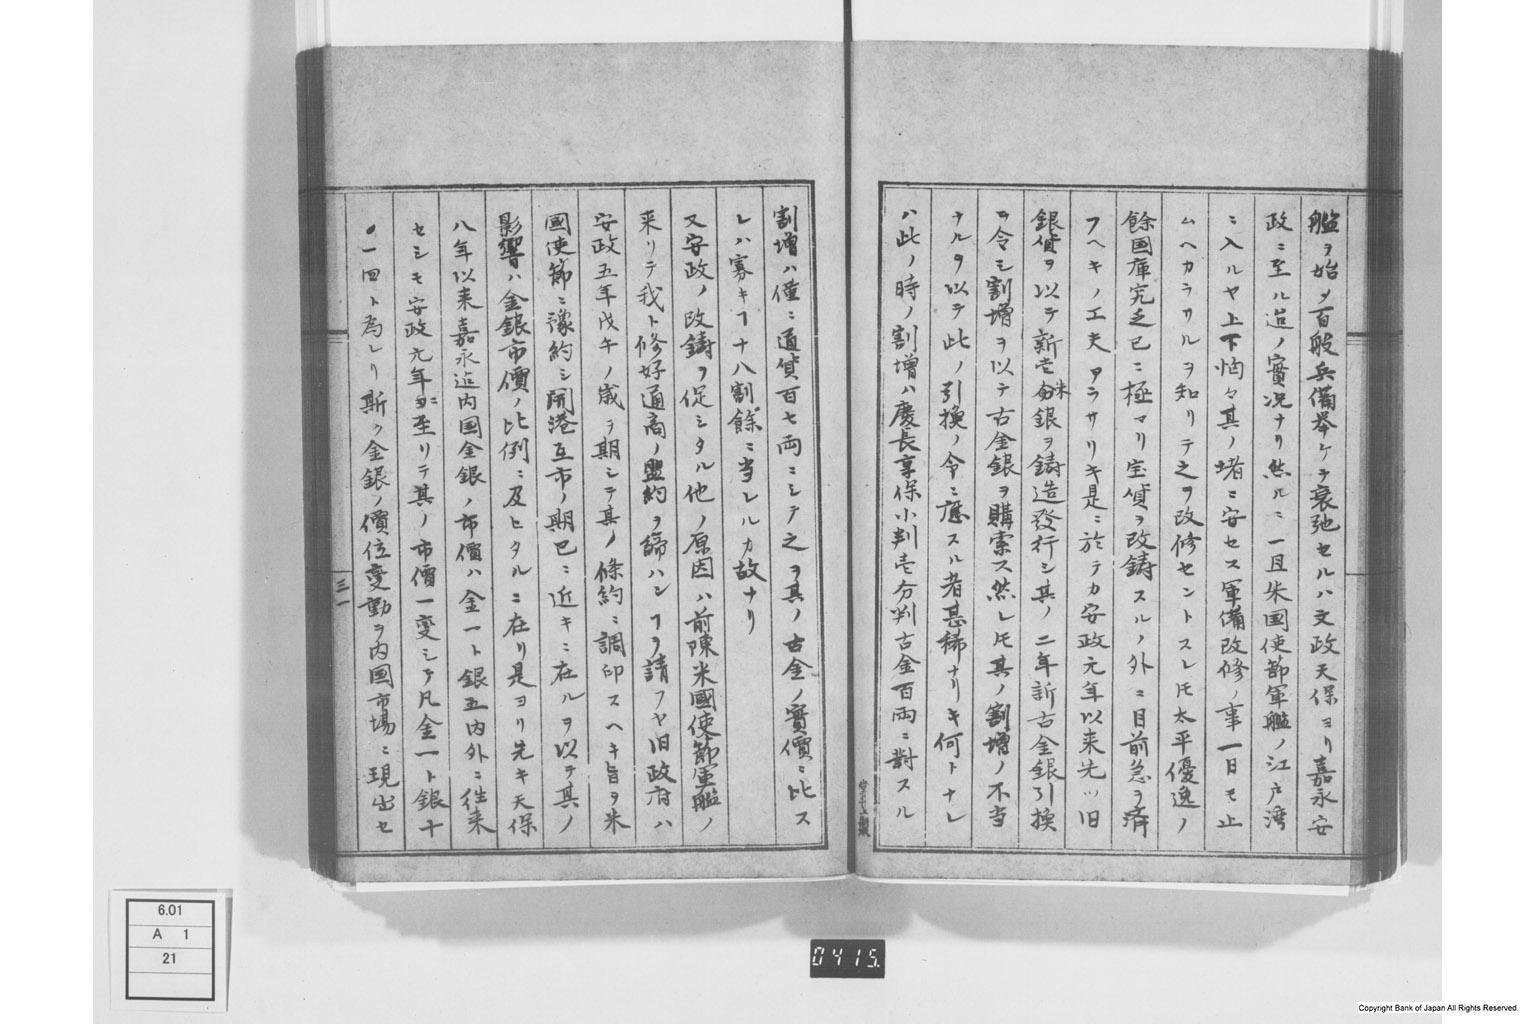 艦ヲ始メ百般兵備擧ケテ衰弛セルハ文政天保ヨリ嘉永安
政ニ至ル迨ノ實况ナリ然ルニ一旦米国使節軍艦ノ江戸湾
ニ入ルヤ上下恟々其ノ堵ニ安セス軍備改修ノ事一日モ止
ムヘカラサルヲ知リテ之ヲ改修セントスレ𪜈太平優逸ノ
餘国庫究乏已ニ極マリ宝貨ヲ改鋳スルノ外ニ目前急ヲ済
フヘキノ工夫アラサリキ是ニ於テカ安政元年以来先ツ旧
銀貨ヲ以テ新壱朱銀ヲ鋳造發行シ其ノ二年新古金銀引換
ヲ令シ割増ヲ以テ古金銀ヲ購索ス然レ𪜈其ノ割増ノ不当
ナルヲ以テ此ノ引換ノ令ニ應スル者甚稀ナリキ何トナレ
ハ此ノ時ノ割増ハ慶長享保小判壱分判古金百両ニ對スル
割増ハ僅ニ通貨百七両ニシテ之ヲ其ノ古金ノ實價ニ比ス
レハ寡キヿ十八割餘ニ当レルカ故ナリ
又安政ノ改鋳ヲ促シタル他ノ原因ハ前陳米國使節軍艦ノ
来リテ我ト修好通商ノ盟約ヲ締ハンヿヲ請フヤ旧政府ハ
安政五年戊午ノ歳ヲ期シテ其ノ條約ニ調印スヘキ旨ヲ米
國使節ニ豫約シ開港互市ノ期已ニ近キニ在ルヲ以テ其ノ
影響ハ金銀市價ノ比例ニ及ヒタルニ在リ是ヨリ先キ天保
八年以来嘉永迨内国金銀ノ市價ハ金一ト銀五内外ニ往来
セシモ安政元年ニ至リテ其ノ市價一変シテ凡金一ト銀十
ノ一回ト為レリ斯ク金銀ノ價位変動ヲ内国市場ニ現出セ
三一
6.01
A 1
21
0415.
Copyright Bank of Japan All Rights Reserved.